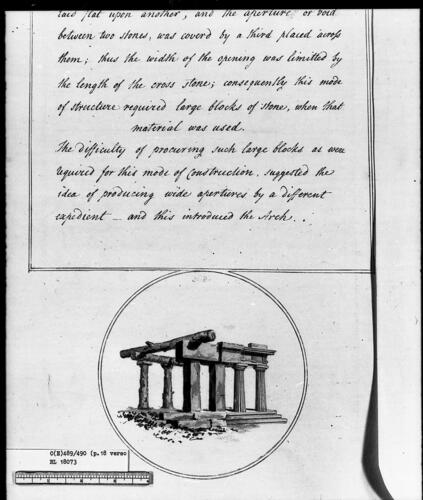 laid flat upon another, and the aperture or void
between two stones, was coverd by a third placed across
them; thus the width of the opening was limitted by
the length of the cross stone; consequently this mode
of structure required large blocks of stone, when that
material was used.
The difficulty of procuring such large blocks as were
required for this mode of Construction. suggested the
idea of producing wide apertures by a different
expedient — and this introduced the Arch. .
C(E)489/490 (p.18 verso
HL 18073